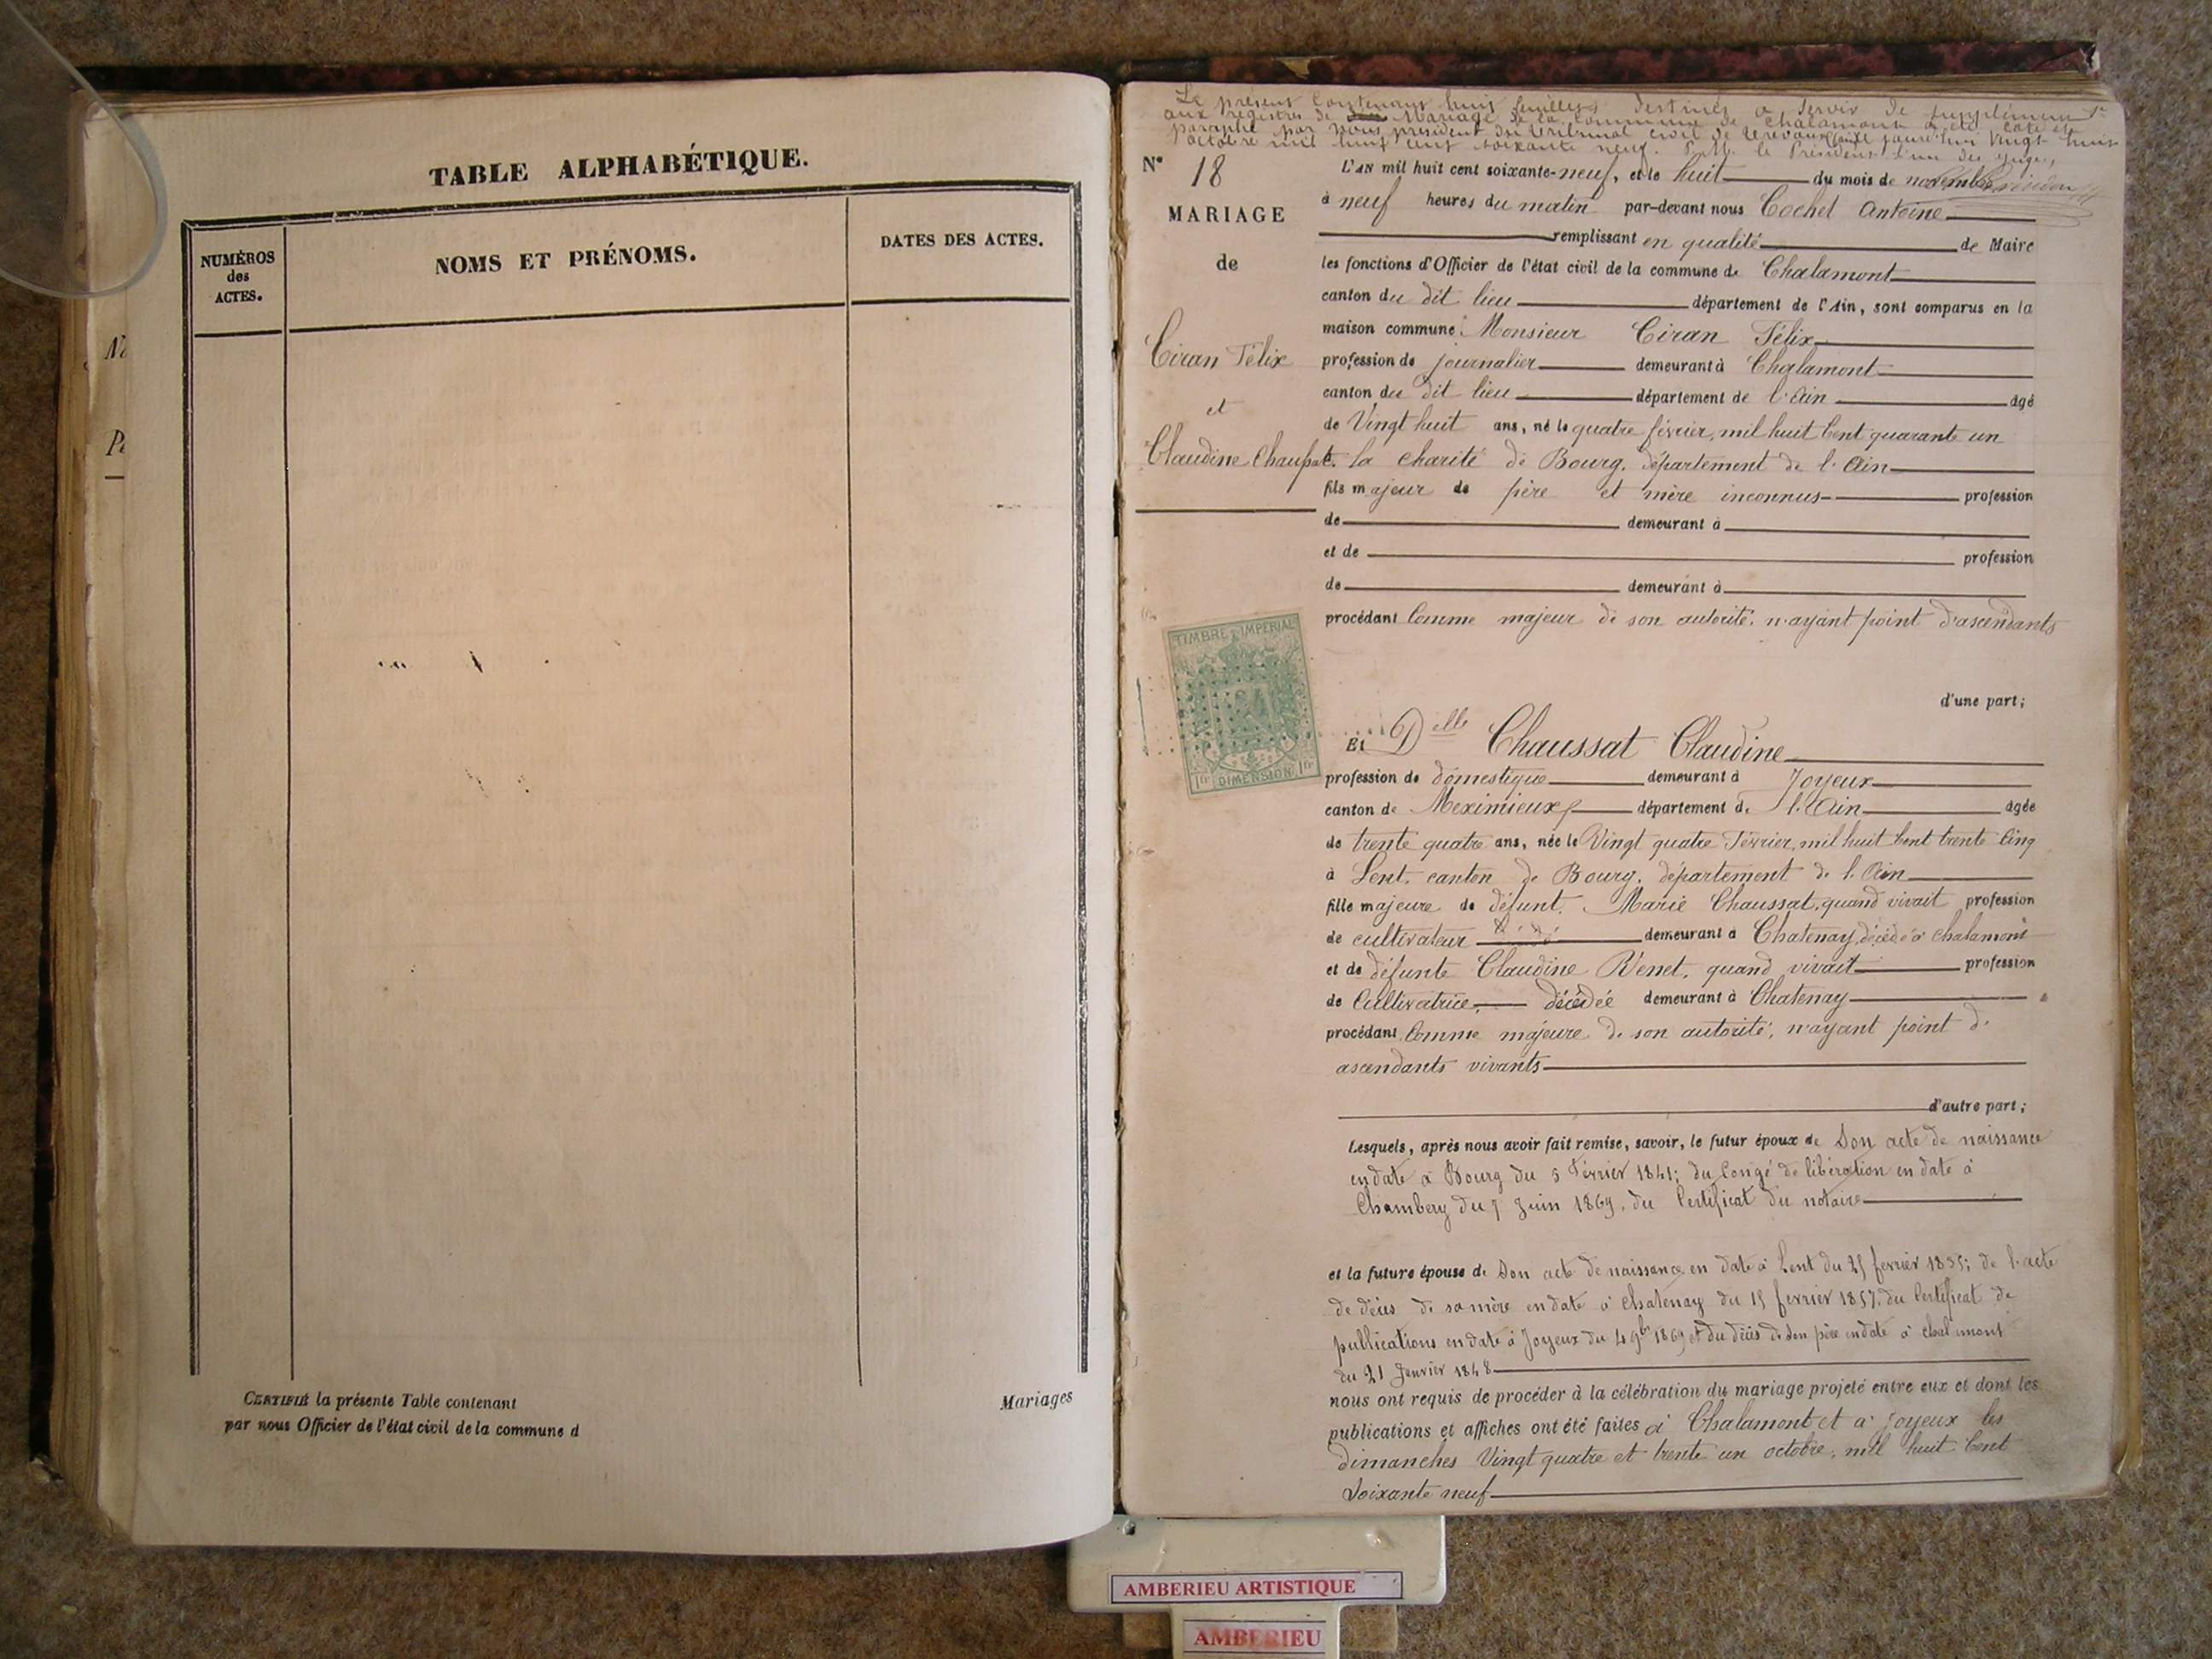 TABLE ALPHABÉTIQUE.
NUMÉROS
des
ACTES.
NOMS ET PRÉNOMS.
DATES DES ACTES.
CERTIFIÉ la présente Table contenant
Mariages
par nous Officier de l'état civil de la commune d
Le présent Contenant huit feuillets destinés a servir de supplément
aux registres de Mariage de la Commune de Chalamont a été coté et
paraphé par nous, président du tribunal civil de Trévoux
octobre mil huit cent soixante neuf. le Président l'un des juges,
N° 18
MARIAGE
de
Ciran Félix
et
Claudine Chaussat
L'AN mil huit cent soixante-neuf, et le huit du mois de novembre
à neuf heures du matin par-devant nous Cochet Antoine
remplissant en qualité de Maire
les fonctions d'Officier de l'état civil de la commune de Chalamont
canton du dit lieu département de l'Ain, sont comparus en la
maison commune: Monsieur Ciran Félix
profession de journalier demeurant à Chalamont
canton du dit lieu département de l'Ain âgé
de Vingt huit ans, né le quatre février, mil huit Cent quarante un
à la charité de Bourg. département de l'Ain
fils majeur de père et mère inconnus profession
de demeurant à
et de profession
de demeurant à
procédant Comme majeur de son autorité. n'ayant point d'ascendants
TIMBRE IMPERIAL
1fr DIMENSION 1fr
d'une part;
Et Delle Chaussat Claudine
profession de domestique demeurant à Joyeux
canton de Meximieux département de l'Ain âgée
de trente quatre ans, née le Vingt quatre Février, mil huit Cent trente Cinq
à Lent. canton de Bourg. département de l'Ain
fille majeure de défunt. Marie Chaussat, quand vivait profession
de cultivateur demeurant à Chatenay, décédé à Chalamont
et de défunte Claudine Venet, quand vivait profession
de Cultivatrice, décédée demeurant à Chatenay
procédant Comme majeure de son autorité, n'ayant point d'
ascendants vivants
d'autre part;
Lesquels, après nous avoir fait remise, savoir, le futur époux de Son acte de naissance
en date à Bourg du 5 Février 1841; du Congé de libération en date à
Chambery du 7 Juin 1869, du Certificat du notaire
et la future épouse de Son acte de naissance en date à Lent du 25 février 1835; de l'acte
de décès de sa mère en date à Chatenay du 15 février 1857. du Certificat de
publications en date à Joyeux du 4 9bre 1869 et du décès de son père en date à Chalamont
du 21 Janvier 1848
nous ont requis de procéder à la célébration du mariage projeté entre eux et dont les
publications et affiches ont été faites à Chalamont et à Joyeux les
dimanches Vingt quatre et trente un octobre, mil huit Cent
Soixante neuf
AMBERIEU ARTISTIQUE
AMBERIEU